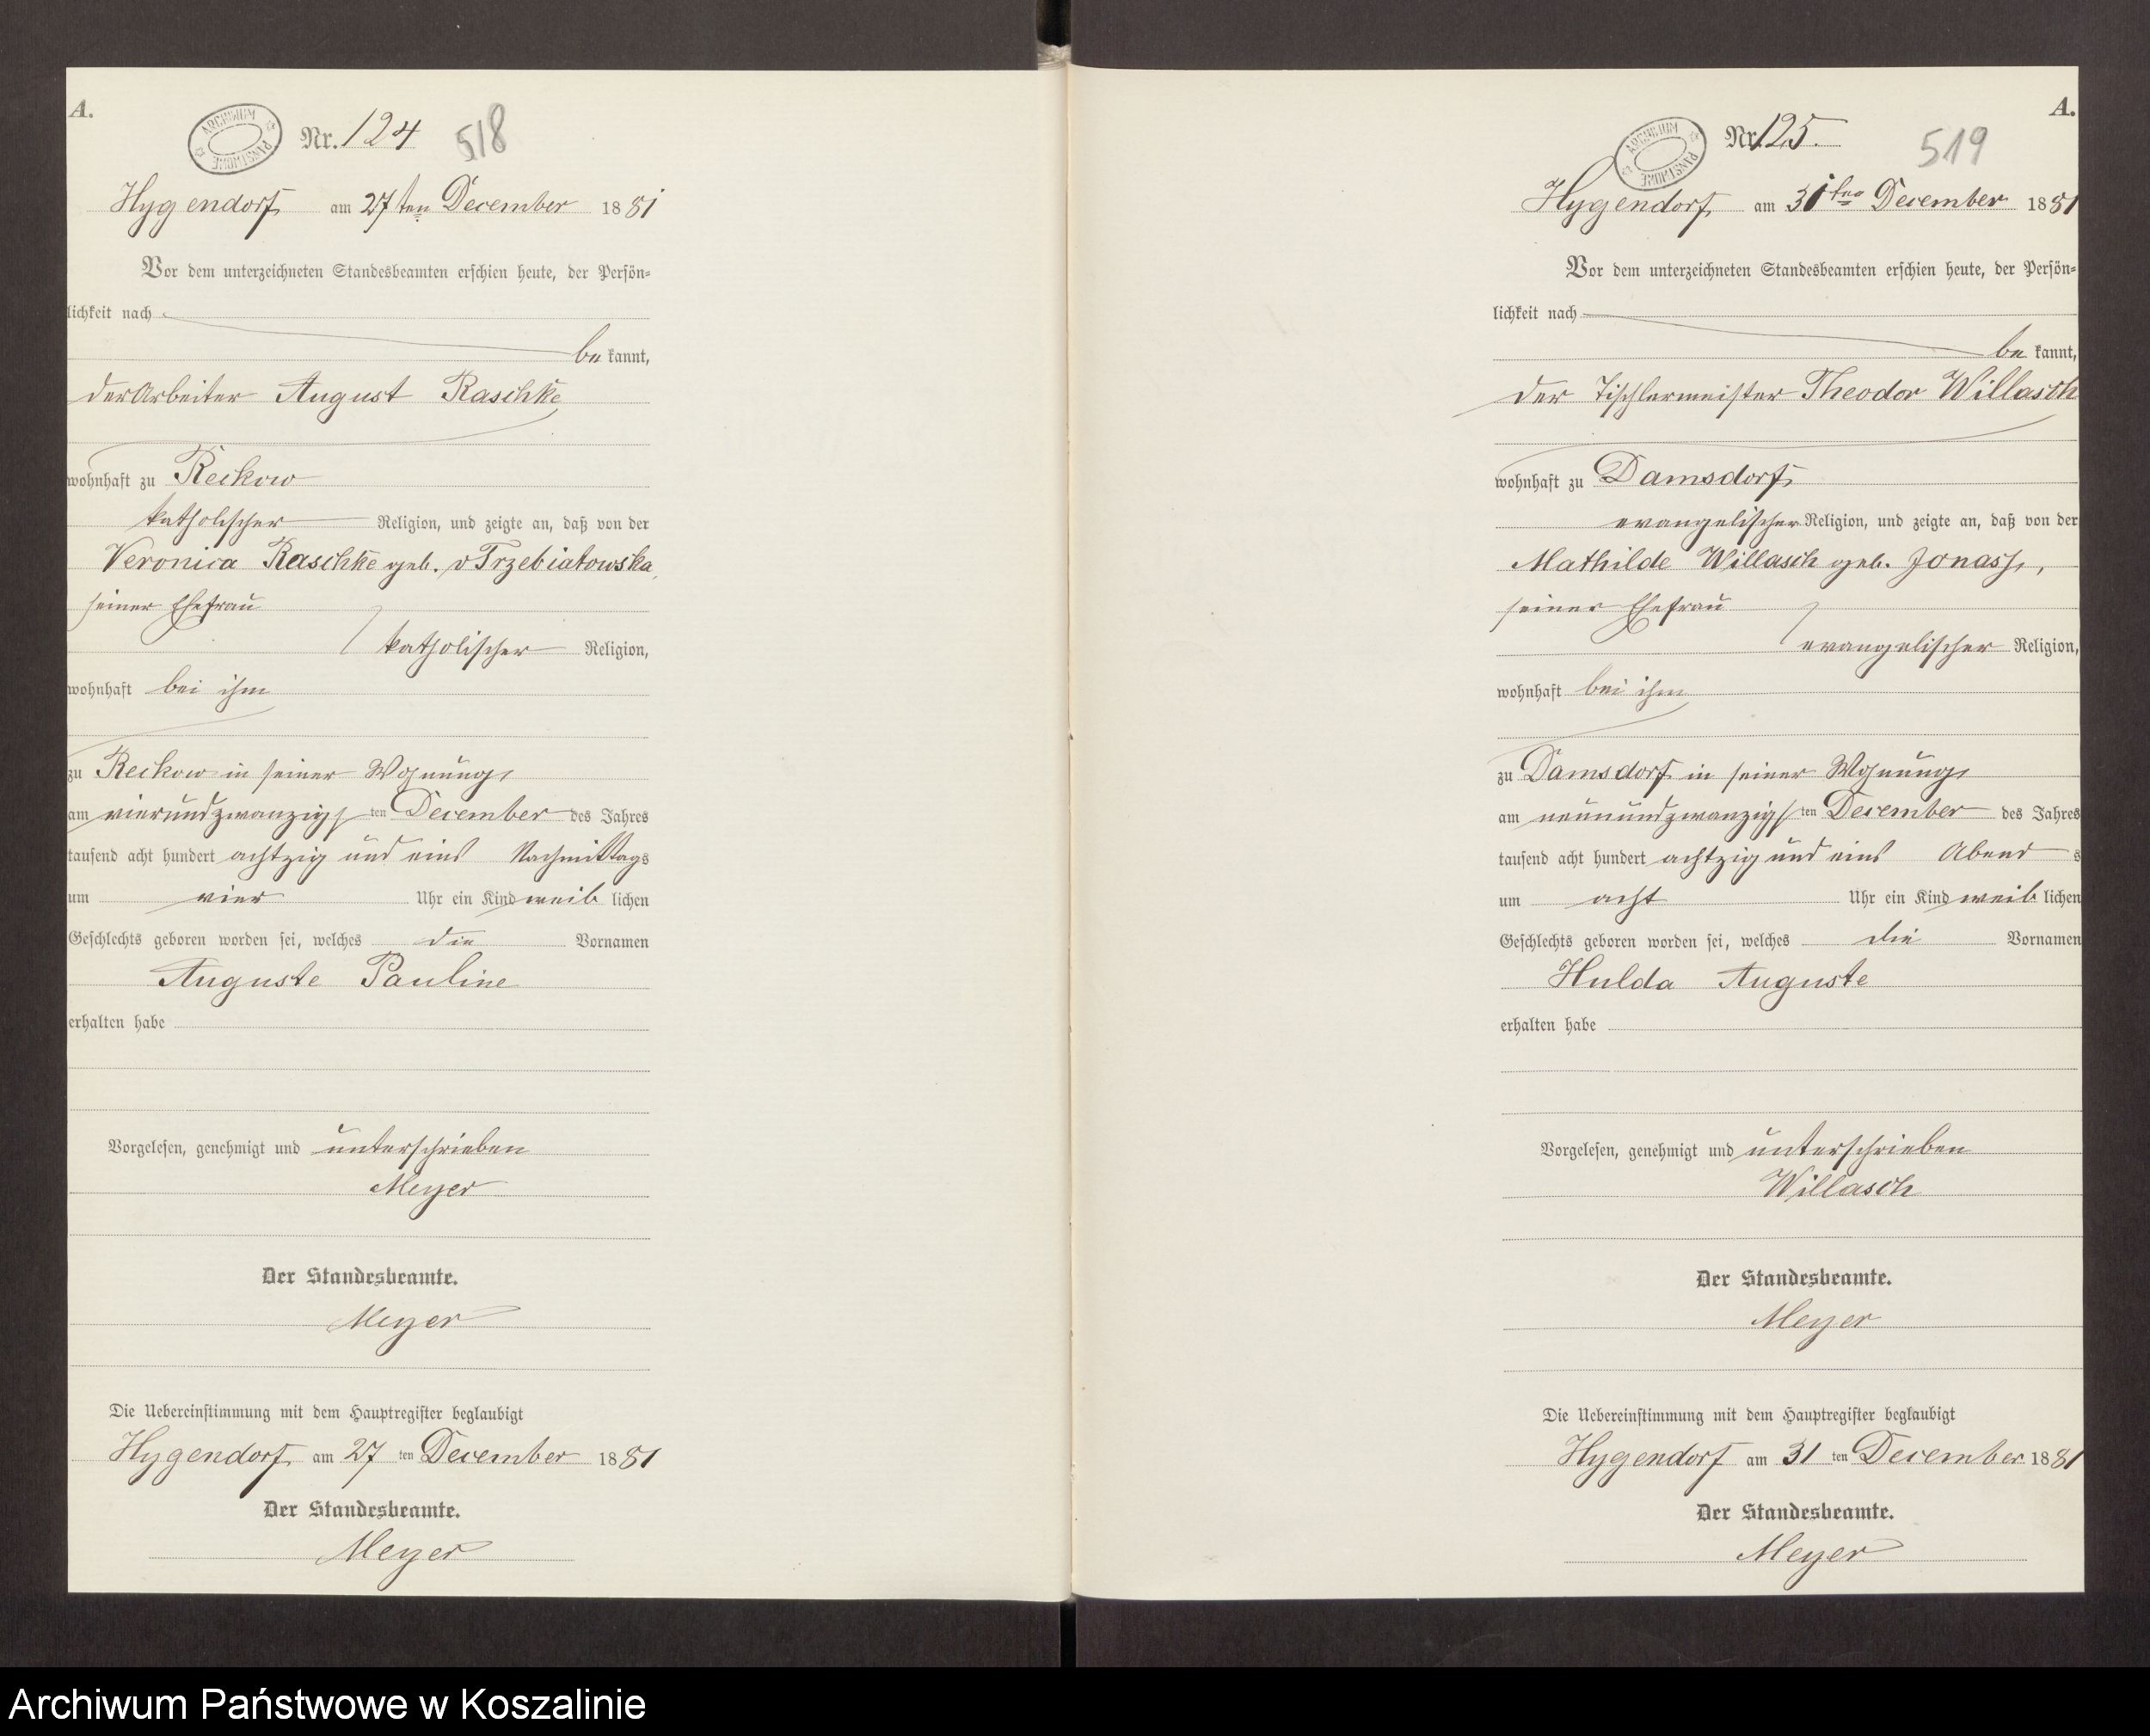 A.
ARCHIWUM PAŃSTWOWE
Nr. 124 518
Hygendorf am 27ten December 1881
Vor dem unterzeichneten Standesbeamten erschien heute, der Persön-
lichkeit nach
be kannt,
der Arbeiter August Raschke
wohnhaft zu Reckow
katholischer Religion, und zeigte an, daß von der
Veronica Raschke geb. v Trzebiatowska,
seiner Ehefrau
katholischer Religion,
wohnhaft bei ihm
zu Reckow in seiner Wohnung,
am vierundzwanzigsten December des Jahres
tausend acht hundert achtzig und eins Nachmittags
um vier Uhr ein Kind weib lichen
Geschlechts geboren worden sei, welches die Vornamen
Auguste Pauline
erhalten habe
Vorgelesen, genehmigt und unterschrieben
Meyer
Der Standesbeamte.
Meyer
Die Uebereinstimmung mit dem Hauptregister beglaubigt
Hygendorf, am 27 ten December 1881
Der Standesbeamte.
Meyer
A.
ARCHIWUM PAŃSTWOWE
Nr. 125. 519
Hygendorf am 31ten December 1881
Vor dem unterzeichneten Standesbeamten erschien heute, der Persön-
lichkeit nach
be kannt,
der Tischlermeister Theodor Willasch
wohnhaft zu Damsdorf,
evangelischer Religion, und zeigte an, daß von der
Mathilde Willasch geb. Jonass,
seiner Ehefrau
evangelischer Religion,
wohnhaft bei ihm
zu Damsdorf in seiner Wohnung,
am neunundzwanzigsten December des Jahres
tausend acht hundert achtzig und eins Abend s
um acht Uhr ein Kind weib lichen
Geschlechts geboren worden sei, welches die Vornamen
Hulda Auguste
erhalten habe
Vorgelesen, genehmigt und unterschrieben
Willasch
Der Standesbeamte.
Meyer
Die Uebereinstimmung mit dem Hauptregister beglaubigt
Hygendorf am 31 ten December 1881
Der Standesbeamte.
Meyer
Archiwum Państwowe w Koszalinie